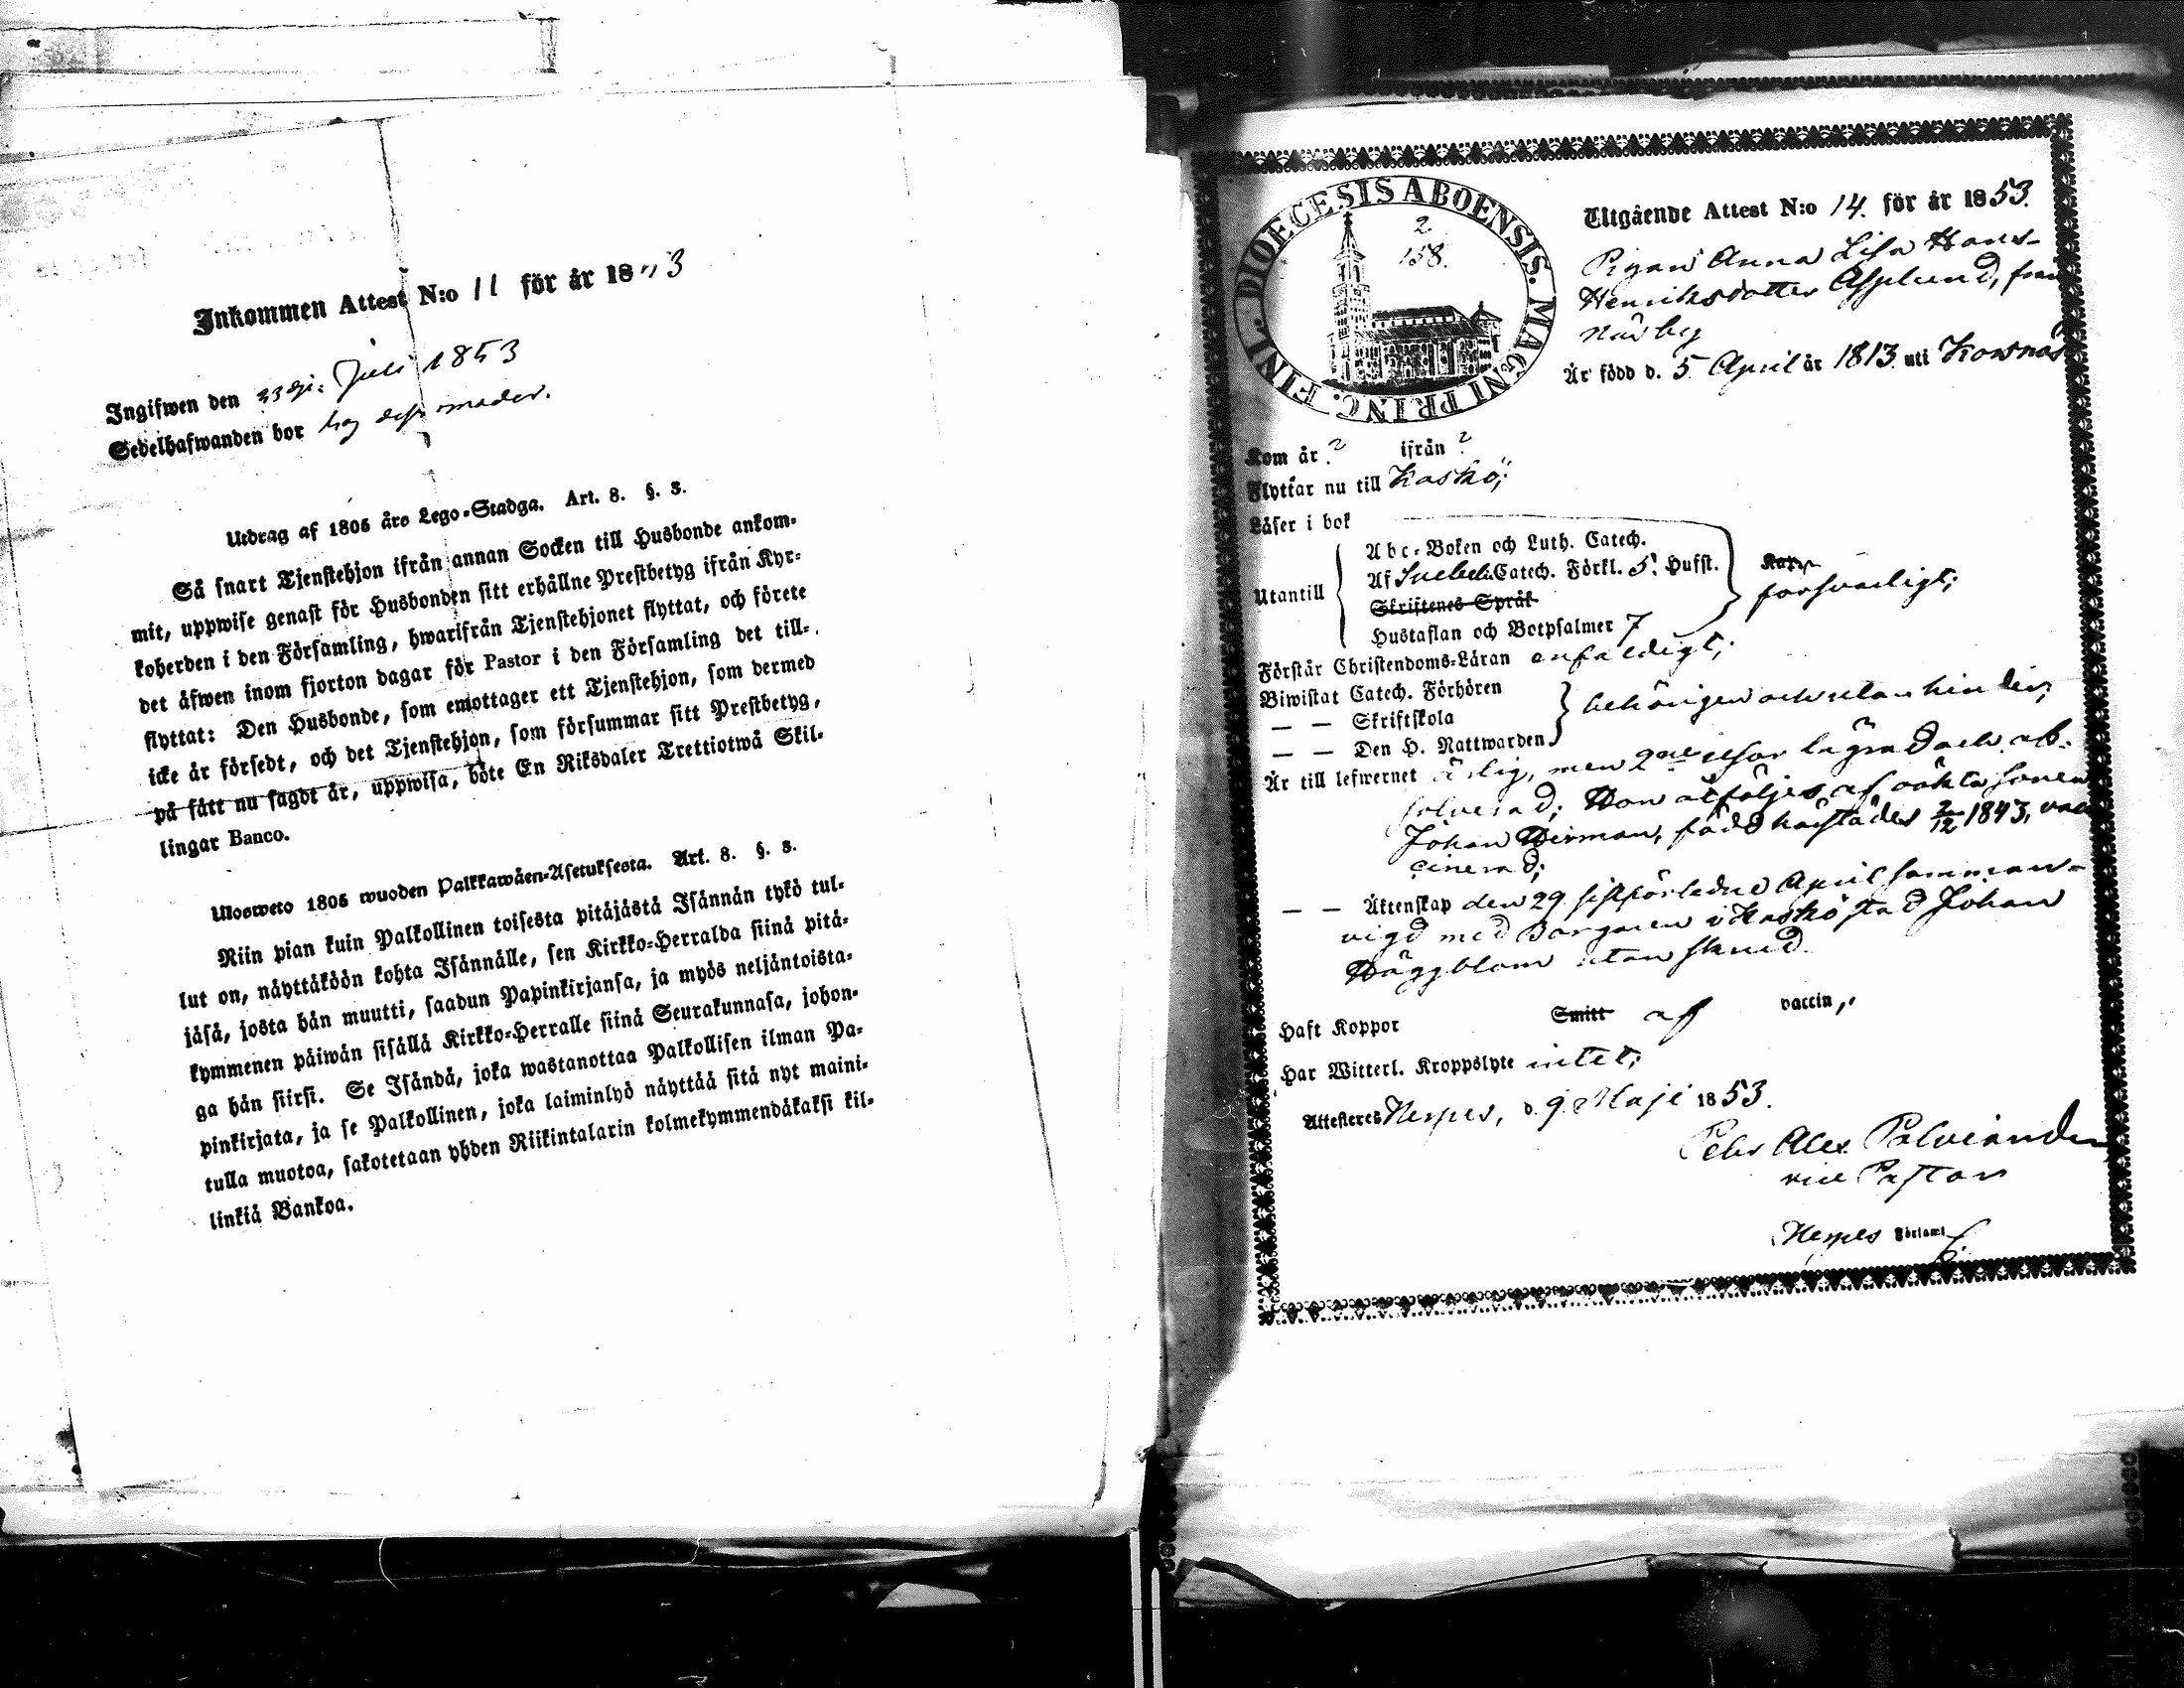 Inkommen Attest N:o 11 för år 18 53
Ingifwen den 23 dji: Juli 1853
Sedelhafwanden bor hog dess moder.
Utdrag af 1805 års Lego-Stadga. Art. 8. §. 3.
Så snart Tjenstehjon ifrån annan Socken till Husbonde ankom-
mit, uppwise genast för Husbonden sitt erhållne Prestbetyg ifrån Kyr-
koherden i den Församling, hwarifrån Tjenstehjonet flyttat, och förete
det äfwen inom fjorton dagar för Pastor i den Församling det till-
flyttat: Den Husbonde, som emottager ett Tjenstehjon, som dermed
icke är försedt, och det Tjenstehjon, som försummar sitt Prestbetyg,
på sätt nu sagdt är, uppwisa, böte En Riksdaler Trettiotwå Skil-
lingar Banco.
Ulosweto 1805 wuoden Palkkawäen-Asetuksesta. Art. 8. §. 3.
Niin pian kuin Palkollinen toisesta pitäjästä Isännän tykö tul-
lut on, näyttäköön kohta Isännälle, sen Kirkko-Herralda siinä pitä-
jäsä, josta hän muutti, saadun Papinkirjansa, ja myös neljäntoista-
kymmenen päiwän sisällä Kirkko-Herralle siinä Seurakunnasa, johon-
ga hän siirsi. Se Isändä, joka wastanottaa Palkollisen ilman Pa-
pinkirjata, ja se Palkollinen, joka laiminlyö näyttää sitä nyt maini-
tulla muotoa, sakotetaan yhden Riikintalarin kolmekymmendäkaksi kil-
linkiä Bankoa.
DIOECESIS ABOENSIS. MAGNI PRINC. FINL.
2
158.
Utgående Attest N:o 14. för år 1853.
Pigan Anna Lisa Hans-
Henriksdotter Asplund, från
Närby
Är född d. 5 April år 1813 uti Korsnäs
Kom år ? ifrån ?
Flyttar nu till Kaskö;
Läser i bok
Utantill
Abc-Boken och Luth. Catech.
Af Svebel. Catech. Förkl. 5. Hufst.
Skriftenes Språk
Hustaflan och Botpsalmer 7
försvarligt;
Förstår Christendoms-Läran enfaldigt;
Biwistat Catech. Förhören
— — Skriftskola
— — Den H. Nattwarden
behörigen och utan hinder;
Är till lefwernet ärlig, men 2ne resor lägrad och ab-
solverad; Hon åtföljes af oäkta sonen
Johan Herman, född härstädes 2/12 1843, vac-
cinerad;
— — Äktenskap den 29 sistförledne April samman-
vigd med Borgaren i Kaskö stad Johan
Häggblom utan skrud.
Haft Koppor Smitt af vaccin,
Har Witterl. Kroppslyte intet;
Attesteres Nerpes, d. 9 Maji 1853.
Petr Alex. Polviander
vice Pastor
Nerpes Församl.